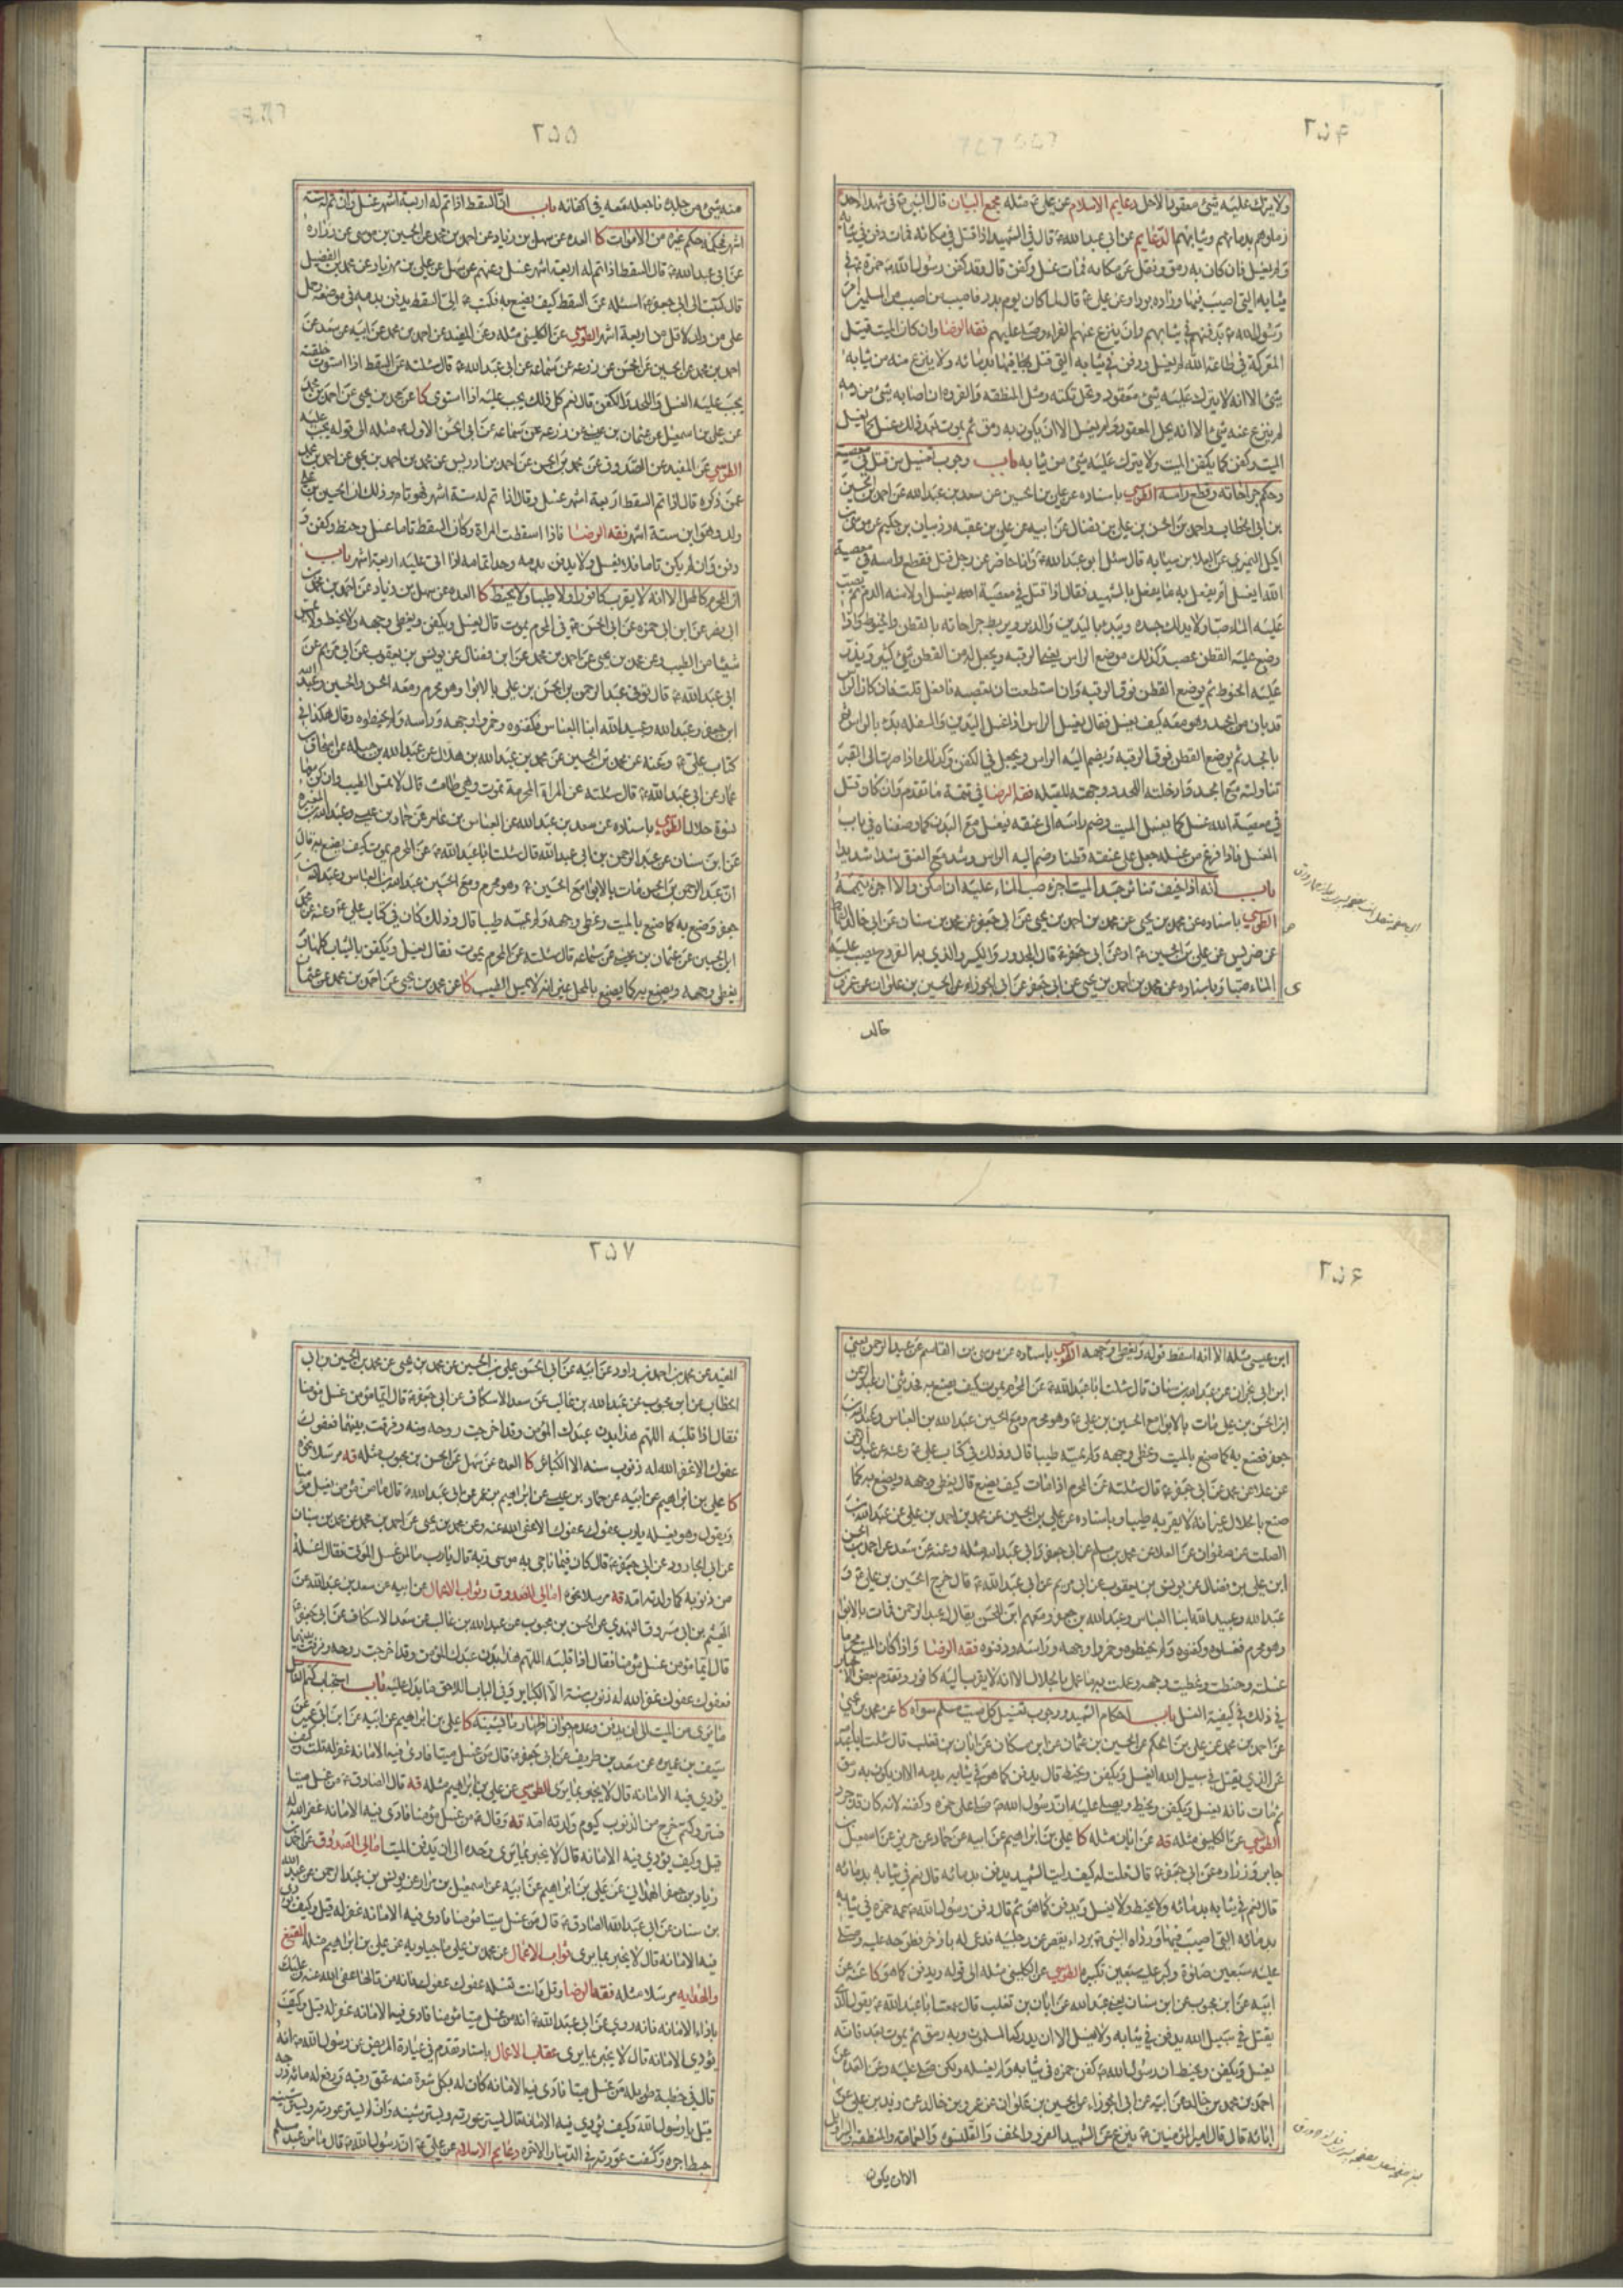 ٢٥۴
ولا يترك عليه شئ معقود الاحل دعايم الاسلام عن على ع مثله مجمع البيان قال النبى ص فى شهداء احد
زملوهم بدمائهم وثيابهم الدعايم عن ابى عبد الله ع قال فى الشهيد اذا قتل فى مكانه فمات دفن فى ثيابه
ولم يغسل فان كان به رمق ونقل عن مكانه فمات غسل وكفن قال وقد كفن رسول الله ص حمزة فى
ثيابه التى اصيب فيها وزاده برداً وعن على ع قال لما كان يوم بدر فاصيب من اصيب من المسلمين امر
رسول الله ص بدفنهم فى ثيابهم وان ينزع عنهم الفراء وصلى عليهم فقه الرضا وان كان الميت قتيل
المعركة فى طاعة الله لم يغسل ودفن فى ثيابه التى قتل فيها بدمائه ولا ينزع منه من ثيابه
شئ الا انه لا يترك عليه شئ معقود وتحل تكته ومثل المنطقه والفروه ان اصابه شئ من دمه
لم ينزع عنه شئ الا انه يحل المعقود ولم يغسل الا ان يكون به رمق ثم يموت بعد ذلك غسل كما يغسل
الميت وكفن كما يكفن الميت ولا يترك عليه شئ من ثيابه باب وجوب تغسيل من قتل فى معصية
وحكم جراحاته وقطع راسه الطوسي باسناده عن على بن الحسين عن سعد بن عبد الله عن احمد بن الحسين
عليه الماء صبا ولا يدلك جسده ويبدء باليدين والدبر ويربط جراحاته بالقطن والحنوط واذا
وضع عليه القطن عصب وكذلك موضع الراس يعنى الرقبه ويجعل له من القطن شئ كثير ويذر
عليه الحنوط ثم يوضع القطن فوق الرقبه وان استطعت ان تعصبه فافعل قلت فان كان الراس
قد بان من الجسد وهو معه كيف يغسل فقال يغسل الراس اذا غسل اليدين والسفله بدء بالراس ثم
بالجسد ثم يوضع القطن فوق الرقبة ويضم اليه الراس ويجعل فى الكفن وكذلك اذا صرت الى القبر
تناولته مع الجسد وادخلته اللحد ووجهته للقبله فقه الرضا فى تتمة ما تقدم وان كان قتل
فى معصية الله غسل كما يغسل الميت وضم راسه الى عنقه يغسل مع البدن كما وصفناه فى باب
الغسل فاذا فرغ من غسله جعل على عنقه قطنا وضم اليه الراس وشد مع العنق شدا شديدا
باب انه اذا خيف تناثر جسد الميت اجزء صب الماء عليه ان امكن والا اجزء تيممه
الطوسي باسناده عن محمد بن يحيى عن محمد بن احمد بن يحيى عن ابى جعفر عن محمد بن سنان عن ابى خالد
عن ضريس عن على بن الحسين ع او عن ابى جعفر ع قال المجدور والكسير والذى به القروح يصب عليه
الماء صبا وباسناده عن محمد بن احمد بن يحيى عن ابى جعفر عن ابى الجوزاء عن الحسين بن علوان عن عمرو بن
خالد
٢٥٥
منه شئ من جلده فاجعله معه فى اكفانه باب ان السقط اذا تم له اربعة اشهر غسل وان تم له ستة
اشهر فحكمه حكم غيره من الاموات كا العده عن سهل بن زياد عن احمد بن محمد عن الحسين بن موسى عن زراره
عن ابى عبد الله ع قال السقط اذا تم له اربعة اشهر غسل وعنهم عن سهل عن على بن مهزيار عن محمد بن الفضيل
قال كتبت الى ابى جعفر ع اسئله عن السقط كيف يصنع به فكتب ع الى السقط يدفن بدمه فى موضعه
احمد بن محمد عن الحسين عن الحسن عن زرعه عن سماعه عن ابى عبد الله ع قال سئلته عن السقط اذا استوت خلقته
يجب عليه الغسل واللحد والكفن قال نعم كل ذلك يجب عليه اذا استوى كا عن محمد بن يحيى عن احمد بن محمد
عن على بن اسمعيل عن عثمان بن عيسى عن زرعه عن سماعه عن ابى الحسن الاول ع مثله الى قوله يجب عليه
الطوسي عن المفيد عن الصدوق عن محمد بن الحسن عن احمد بن ادريس عن محمد بن احمد بن يحيى عن احمد بن محمد
عمن ذكره قال اذا تم السقط اربعة اشهر غسل وقال اذا تم له ستة اشهر فهو تام وذلك ان الحسين بن على
ولد وهو ابن ستة اشهر فقه الرضا فاذا اسقطت المراة وكان السقط تاما غسل وحنط وكفن و
دفن وان لم يكن تاما فلا يغسل ولا يدفن بدمه وحد اتمامه اذا اتى عليه اربعة اشهر باب
ان المحرم كالمحل الا انه لا يقرب كافورا ولا طيبا ولا يحنط كا العده عن سهل بن زياد عن احمد بن محمد بن
ابى نصر عن ابن ابى حمزه عن ابى الحسن ع فى المحرم يموت قال يغسل ويكفن ويغطى وجهه ولا يحنط ولا يمس
شيئا من الطيب وعن محمد بن يحيى عن احمد بن محمد عن ابن فضال عن يونس بن يعقوب عن ابى مريم عن
ابى عبد الله ع قال توفى عبد الرحمن بن الحسن بن على بالابواء وهو محرم ومعه الحسن والحسين وعبد الله
ابن جعفر وعبد الله وعبيد الله ابنا العباس فكفنوه وخمروا وجهه وراسه ولم يحنطوه وقال هكذا فى
كتاب على ع وعنه عن محمد بن الحسين عن محمد بن عبد الله بن هلال عن عبد الله بن جبله عن اسحاق بن
عمار عن ابى عبد الله ع قال سئلته عن المراة المحرمة تموت وهى طامث قال لا تمس الطيب وان كن معها
نسوة حلال الطوسي باسناده عن سعد بن عبد الله عن العباس بن عامر عن حماد بن عيسى وعبد الله بن المغيره
عن ابن سنان عن عبد الرحمن بن ابى عبد الله قال سئلت ابا عبد الله ع عن المحرم يموت كيف يصنع به قال
ان عبد الرحمن بن الحسن مات بالابواء مع الحسين ع وهو محرم ومع الحسين عبد الله بن العباس وعبد الله بن
جعفر وصنع به كما صنع بالميت وغطى وجهه ولم يمسه طيبا قال وذلك كان فى كتاب على ع وعنه عن محمد
ابن الحسين عن عثمان بن عيسى عن سماعه قال سئلته عن المحرم يموت فقال يغسل ويكفن بالثياب كلها و
يغطى وجهه ويصنع به كما يصنع بالمحل غير انه لا يمس الطيب كا عن محمد بن يحيى عن احمد بن محمد عن عثمان
٢٥۶
ابن عيسى مثله الا انه اسقط قوله ويغطى وجهه الطوسي باسناده عن موسى بن القاسم عن عبد الرحمن يعنى
ابن ابى نجران عن عبد الله بن سنان قال سئلت ابا عبد الله ع عن المحرم يموت كيف يصنع به فحدثنى ان عبد الرحمن
ابن الحسن بن على مات بالابواء مع الحسين بن على ع وهو محرم ومع الحسين عبد الله بن العباس وعبد الله بن
جعفر فصنع به كما صنع بالميت وغطى وجهه ولم يمسه طيبا قال وذلك فى كتاب على ع وعنه عن عبد الرحمن
عن علا عن محمد عن ابى جعفر ع قال سئلته عن المحرم اذا مات كيف يصنع قال يغطى وجهه ويصنع به كما
صنع بالحلال غير انه لا يقربه طيبا وباسناده عن على بن الحسين عن محمد بن احمد بن على عن عبد الله بن
الصلت عن صفوان عن العلا عن محمد بن مسلم عن ابى جعفر وابى عبد الله مثله وعنه عن سعد عن احمد بن الحسن
ابن على بن فضال عن يونس بن يعقوب عن ابى مريم عن ابى عبد الله ع قال خرج الحسين بن على ع و
عبد الله وعبيد الله ابنا العباس وعبد الله بن جعفر ومعهم ابن للحسن يقال له عبد الرحمن فمات بالابواء
وهو محرم فغسلوه وكفنوه ولم يحنطوه وخمروا وجهه وراسه ودفنوه فقه الرضا واذا كان الميت محرما
غسلته وحنطت وغطيت وجهه وعملت به ما عمل بالحلال الا انه لا يقرب اليه كافور وتقدم بعض الاخبار
فى ذلك فى كيفية الغسل باب احكام الشهيد ووجوب تغسيل كل ميت مسلم سواه كا عن محمد بن يحيى
عن احمد بن محمد عن على بن الحكم عن الحسين بن عثمان عن ابن مسكان عن ابان بن تغلب قال سئلت ابا عبد الله
عن الذى يقتل فى سبيل الله ايغسل ويكفن ويحنط قال يدفن كما هو فى ثيابه بدمه الا ان يكون به رمق
ثم مات فانه يغسل ويكفن ويحنط ويصلى عليه ان رسول الله ص صلى على حمزه وكفنه لانه كان قد جرد
الطوسي عن الكلينى مثله قه عن ابان مثله كا على بن ابراهيم عن ابيه عن حماد عن حريز عن اسمعيل بن
جابر وزراره عن ابى جعفر ع قال قلت له كيف رايت الشهيد يدفن بدمائه قال نعم فى ثيابه بدمائه
ولا يحنط ولا يغسل ويدفن كما هو ثم قال دفن رسول الله ص عمه حمزه فى ثيابه
بدمائه التى اصيب فيها ورداه النبى ص برداء يقصر عن رجليه فدعى له باذخر فطرحه عليه وصلى
عليه سبعين صلوة وكبر عليه سبعين تكبيرة الطوسي عن الكلينى مثله الى قوله ويدفن كما هو كا عنه عن
ابيه عن ابن محبوب عن ابن سنان يعنى عبد الله عن ابان بن تغلب قال سمعت ابا عبد الله ع يقول الذى
يقتل فى سبيل الله يدفن فى ثيابه ولا يغسل الا ان يدركه المسلمون وبه رمق ثم يموت بعد فانه
يغسل ويكفن ويحنط ان رسول الله ص كفن حمزه فى ثيابه ولم يغسله ولكن صلى عليه وعن العده عن
احمد بن محمد بن خالد عن ابيه عن ابى الجوزاء عن الحسين بن علوان عن عمرو بن خالد عن زيد بن على عن
ابائه قال قال امير المؤمنين ع ينزع عن الشهيد الفرو والخف والقلنسوه والعمامه والمنطقه والسراويل
الا ان يكون
٢٥٧
المفيد عن محمد بن احمد بن داود عن ابيه عن ابى الحسن على بن الحسين عن محمد بن يحيى عن محمد بن الحسين بن ابى
الخطاب عن ابن محبوب عن عبد الله بن غالب عن سعد الاسكاف عن ابى جعفر ع قال ايما مؤمن غسل مؤمنا
فقال اذا قلبه اللهم هذا بدن عبدك المؤمن وقد اخرجت روحه منه وفرقت بينهما فعفوك
عفوك الا غفر الله له ذنوب سنه الا الكبائر كا العده عن سهل عن الحسن بن محبوب مثله قه مرسلا نحوه
كا على بن ابراهيم عن ابيه عن حماد بن عيسى عن ابراهيم بن عمر عن ابى عبد الله ع قال ما من مؤمن يغسل مؤمنا
ويقول وهو يغسله يا رب عفوك عفوك الا عفى الله عنه وعن محمد بن يحيى عن احمد بن محمد عن محمد بن سنان
عن ابى الجارود عن ابى جعفر ع قال كان فيما ناجى به موسى ربه قال يا رب ما لمن غسل الموتى فقال اغسله
من ذنوبه كما ولدته امه قه مرسلا نحوه امالى الصدوق وثواب الاعمال عن ابيه عن سعد بن عبد الله عن
الهيثم بن ابى مسروق النهدى عن الحسن بن محبوب عن عبد الله بن غالب عن سعد الاسكاف عن ابى جعفر ع
قال ايما مؤمن غسل مؤمنا فقال اذا قلبه اللهم هذا بدن عبدك المؤمن وقد اخرجت روحه وفرقت بينهما
فعفوك عفوك غفر الله له ذنوب سنة الا الكبائر وفى الباب اللاحق ما يدل عليه باب استحباب كتم الغاسل
ما يرى من الميت الى ان يدفن وعدم جواز اظهار ما يشينه كا على بن ابراهيم عن ابيه عن ابن ابى عمير عن
سيف بن عميره عن سعد بن طريف عن ابى جعفر ع قال من غسل ميتا فادى فيه الامانه غفر له قلت وكيف
يؤدى فيه الامانه قال لا يخبر بما يرى الطوسي عن على بن ابراهيم مثله قه قال الصادق ع من غسل ميتا
فستر وكتم خرج من الذنوب كيوم ولدته امه قه وقال ع من غسل مؤمنا فادى فيه الامانه غفر الله له
قيل وكيف يؤدى فيه الامانه قال لا يخبر بما يرى وحده الى ان يدفن الميت امالى الصدوق عن احمد بن
زياد بن جعفر الهمدانى عن على بن ابراهيم عن ابيه عن اسمعيل بن مرار عن يونس بن عبد الرحمن عن عبد الله
بن سنان عن ابى عبد الله الصادق ع قال من غسل ميتا مؤمنا فادى فيه الامانه غفر له قيل وكيف يؤدى
فيه الامانه قال لا يخبر بما يرى ثواب الاعمال عن محمد بن على ماجيلويه عن على بن ابراهيم مثله المقنع
والهدايه مرسلا مثله فقه الرضا وقل وانت تغسله عفوك عفوك فانه من قالها عفى الله عنه وعليك
باداء الامانه فانه روى عن ابى عبد الله ع انه من غسل ميتا مؤمنا فادى فيه الامانه غفر له قيل وكيف
يؤدى الامانه قال لا يخبر بما يرى عقاب الاعمال باسناد تقدم فى عيادة المريض عن رسول الله ص انه
قال فى خطبة طويله من غسل ميتا فادى فيه الامانه كان له بكل شعرة منه عتق رقبه ورفع له مائة درجه
قيل يا رسول الله وكيف يؤدى فيه الامانه قال يستر عورته ويستر شينه وان لم يستر عورته ويستر شينه
حبط اجره وكشفت عورته فى الدنيا والاخره دعايم الاسلام عن على ع ان رسول الله ص قال ما من عبد مسلم